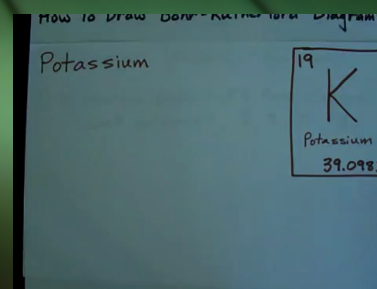 How To Draw Bohr-Rutherford Diagram
Potassium
19
K
Potassium
39.098